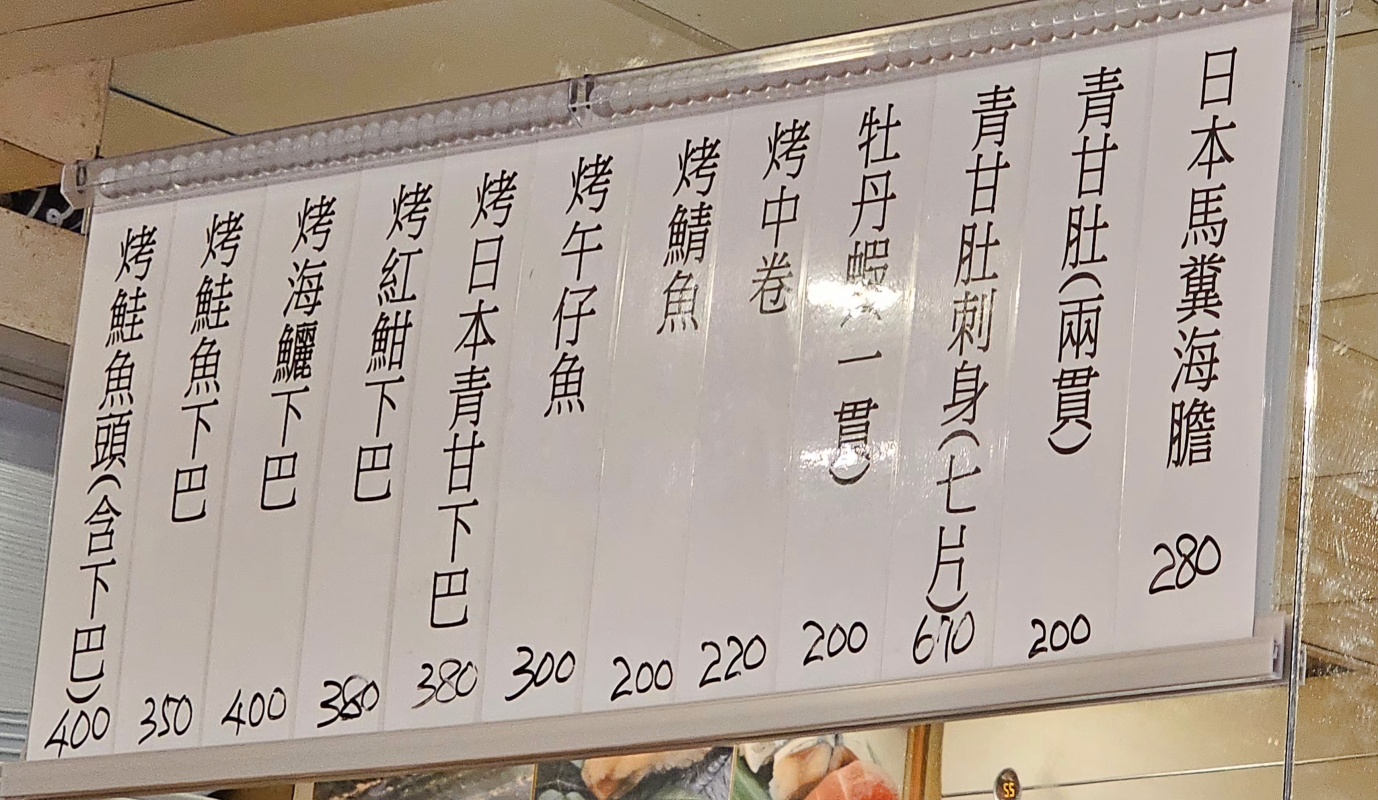 日本馬糞海膽 280
青甘肚(兩貫) 200
青甘肚刺身(七片) 670
牡丹蝦(一貫) 200
烤中卷 220
烤鯖魚 200
烤午仔魚 300
烤日本青甘下巴 380
烤紅魽下巴 380
烤海鱺下巴 400
烤鮭魚下巴 350
烤鮭魚頭(含下巴) 400
55